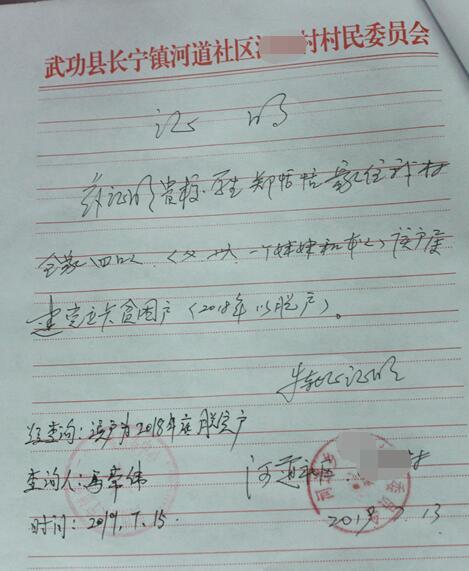 武功县长宁镇河道社区村村民委员会
证 明
兹证明贵校学生郑恬恬家住我村
全家四口人（父 母 一个妹妹和本人）该户属
建档立卡贫困户（2018年以脱户）。
特此证明
经查询：该户为2018年底脱贫户
查询人：
河道社区 村
时间：2019.7.15.
2019.7.13